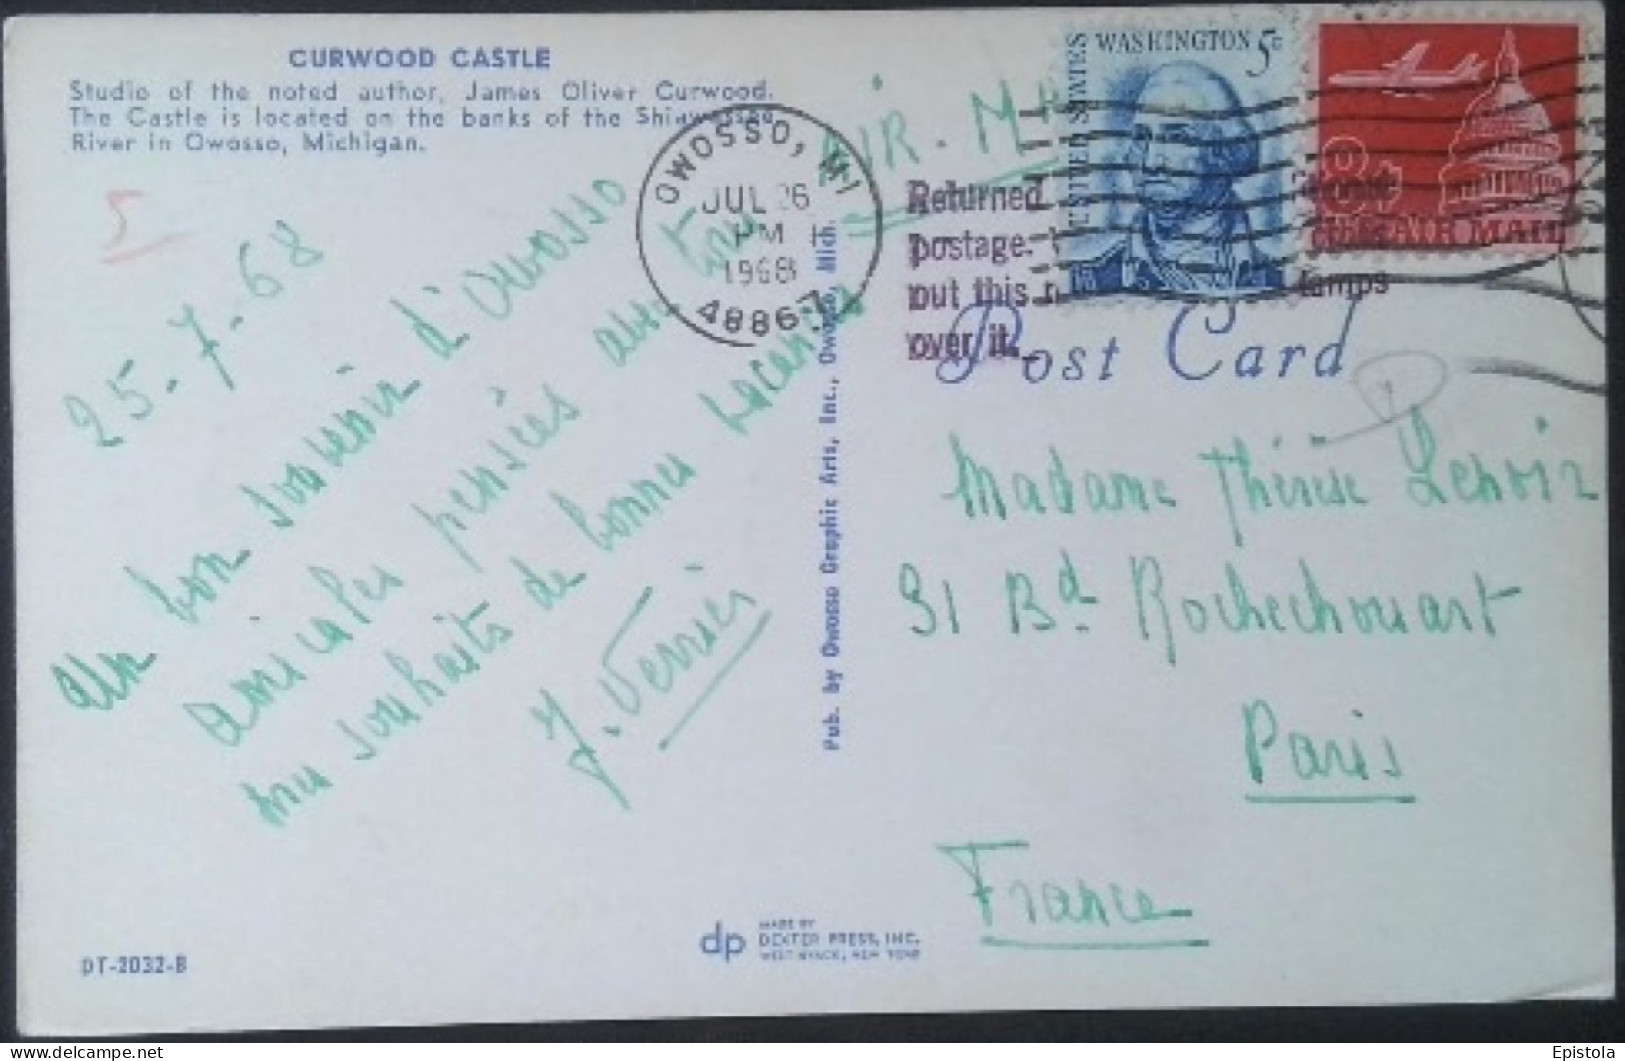 CURWOOD CASTLE
Studio of the noted author, James Oliver Curwood.
The Castle is located on the banks of the Shiawassee
River in Owosso, Michigan.
5
25-7-68
Un bon souvenir d'Owosso
amicales pensées avec
mes souhaits de bonnes vacances
J. Verrier
DT-2032-B
OWOSSO, MI
JUL 26
PM
1968
48867
AIR-MA
Pub. by Owosso Graphic Arts, Inc., Owosso, Mich.
dp MADE BY
DEXTER PRESS, INC.
WEST NYACK, NEW YORK
Returned
postage.
out this
over it.
UNITED STATES
WASHINGTON 5c
8c
US AIR MAIL
Post Card
Madame Thérèse Lenoir
91 Bd Rochechouart
Paris
France
delcampe.net
Epistola